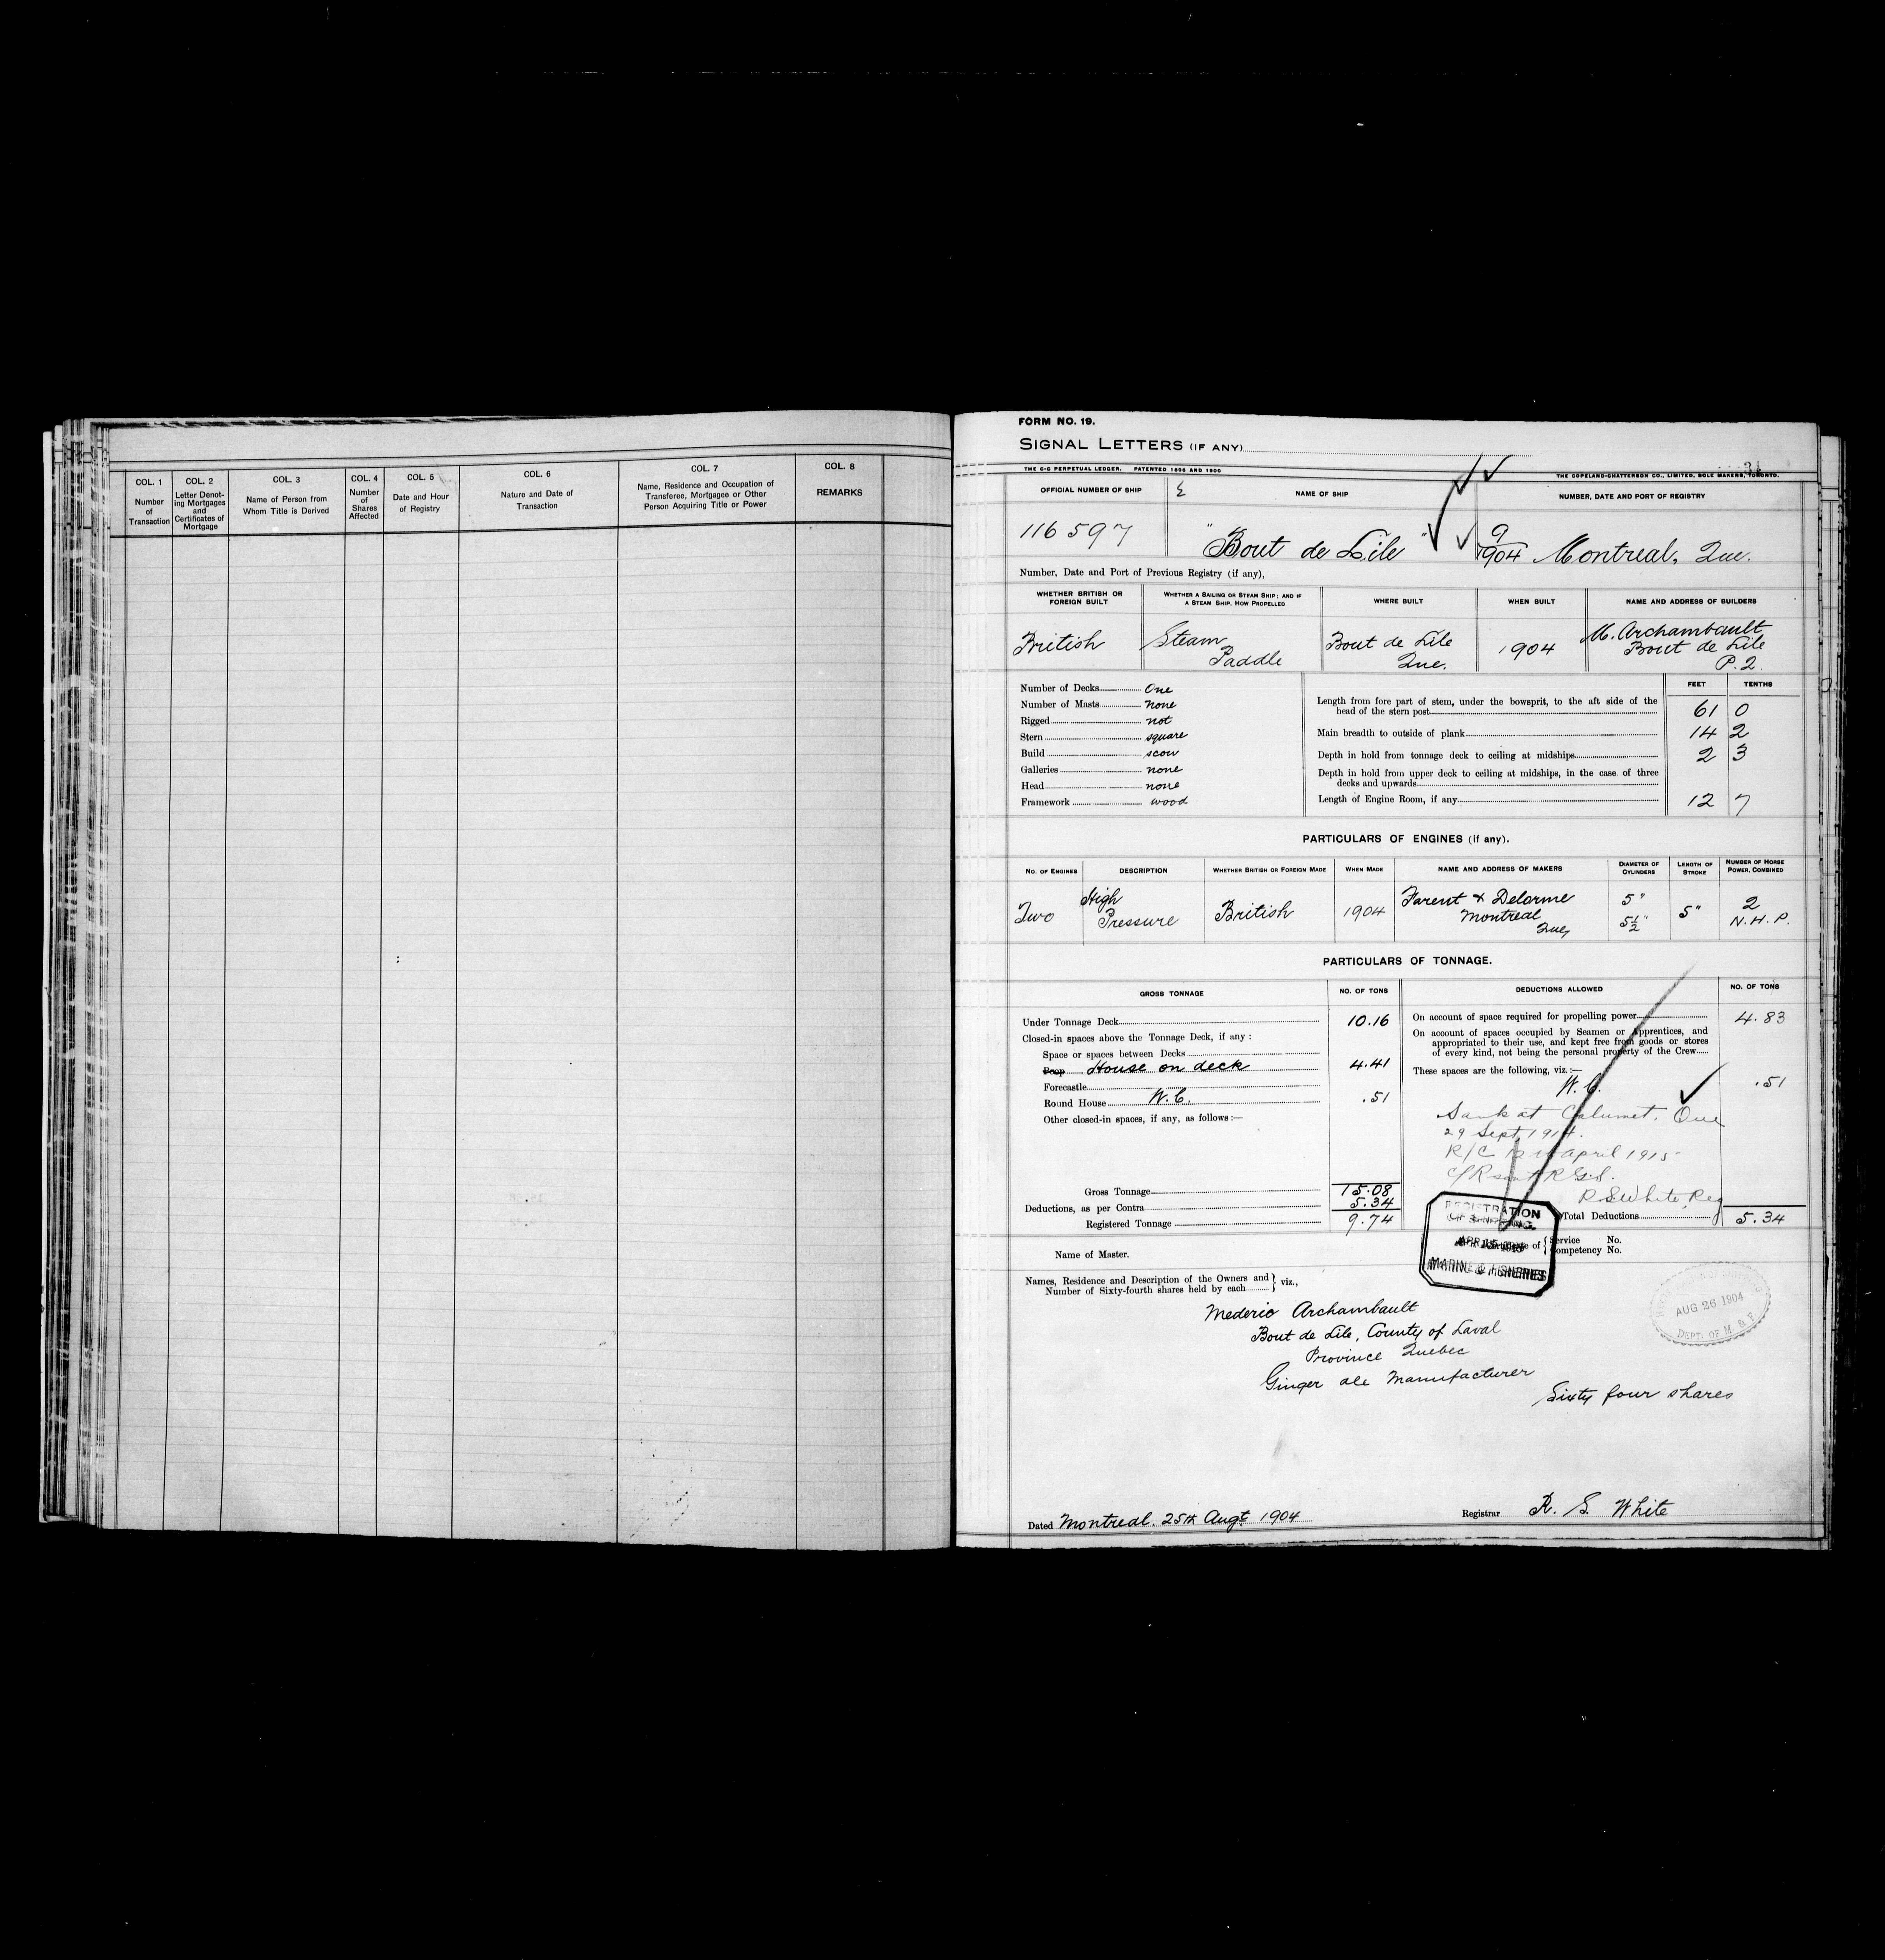 COL. 1
Number
of
Transaction
COL. 2
Letter Denot-
ing Mortgages
and
Certificates of
Mortgage
COL. 3
Name of Person from
Whom Title is Derived
COL. 4
Number
of
Shares
Affected
COL. 5
Date and Hour
of Registry
COL. 6
Nature and Date of
Transaction
COL. 7
Name, Residence and Occupation of
Transferee, Mortgagee or Other
Person Acquiring Title or Power
COL. 8
REMARKS
FORM NO. 19.
SIGNAL LETTERS (IF ANY)
THE C-C PERPETUAL LEDGER. PATENTED 1896 AND 1900
31
THE COPELAND-CHATTERSON CO., LIMITED, SOLE MAKERS, TORONTO.
OFFICIAL NUMBER OF SHIP
NAME OF SHIP
NUMBER, DATE AND PORT OF REGISTRY
116597
"Bout de Lile"
9
1904 Montreal, Que.
Number, Date and Port of Previous Registry (if any),
WHETHER BRITISH OR
FOREIGN BUILT
WHETHER A SAILING OR STEAM SHIP; AND IF
A STEAM SHIP, HOW PROPELLED
WHERE BUILT
WHEN BUILT
NAME AND ADDRESS OF BUILDERS
British
Steam
Paddle
Bout de Lile
Que.
1904
M. Archambault
Bout de Lile
P.Q.
Number of Decks One
Number of Masts none
Rigged not
Stern square
Build scow
Galleries none
Head none
Framework wood
FEET TENTHS
Length from fore part of stem, under the bowsprit, to the aft side of the
head of the stern post 61 0
Main breadth to outside of plank 14 2
Depth in hold from tonnage deck to ceiling at midships 2 3
Depth in hold from upper deck to ceiling at midships, in the case of three
decks and upwards
Length of Engine Room, if any 12 7
PARTICULARS OF ENGINES (if any).
NO. OF ENGINES
DESCRIPTION
WHETHER BRITISH OR FOREIGN MADE
WHEN MADE
NAME AND ADDRESS OF MAKERS
DIAMETER OF
CYLINDERS
LENGTH OF
STROKE
NUMBER OF HORSE
POWER, COMBINED
Two
High
Pressure
British
1904
Parent & Delorme
Montreal
Que,
5"
5½"
5"
2
N.H.P.
PARTICULARS OF TONNAGE.
GROSS TONNAGE
NO. OF TONS
Under Tonnage Deck 10.16
Closed-in spaces above the Tonnage Deck, if any :
Space or spaces between Decks
Poop House on deck 4.41
Forecastle
Round House W.C. .51
Other closed-in spaces, if any, as follows :—
Gross Tonnage 15.08
Deductions, as per Contra 5.34
Registered Tonnage 9.74
DEDUCTIONS ALLOWED
NO. OF TONS
On account of space required for propelling power 4.83
On account of spaces occupied by Seamen or Apprentices, and
appropriated to their use, and kept free from goods or stores
of every kind, not being the personal property of the Crew
These spaces are the following, viz. :—
W.C. .51
Sank at Calumet, Que
29 Sept. 1914.
R/C April 1915
R S White Reg
Total Deductions 5.34
REGISTRATION
OF SHIPPING.
APR 15 1915
MARINE & FISHERIES
Name of Master.
of { Service No.
Competency No.
Names, Residence and Description of the Owners and
Number of Sixty-fourth shares held by each } viz.,
Mederic Archambault
Bout de Lile, County of Laval
Province Quebec
Ginger ale Manufacturer
Sixty four shares
AUG 26 1904
DEPT. OF M & F
Dated Montreal. 25th Augt 1904
Registrar R. S. White